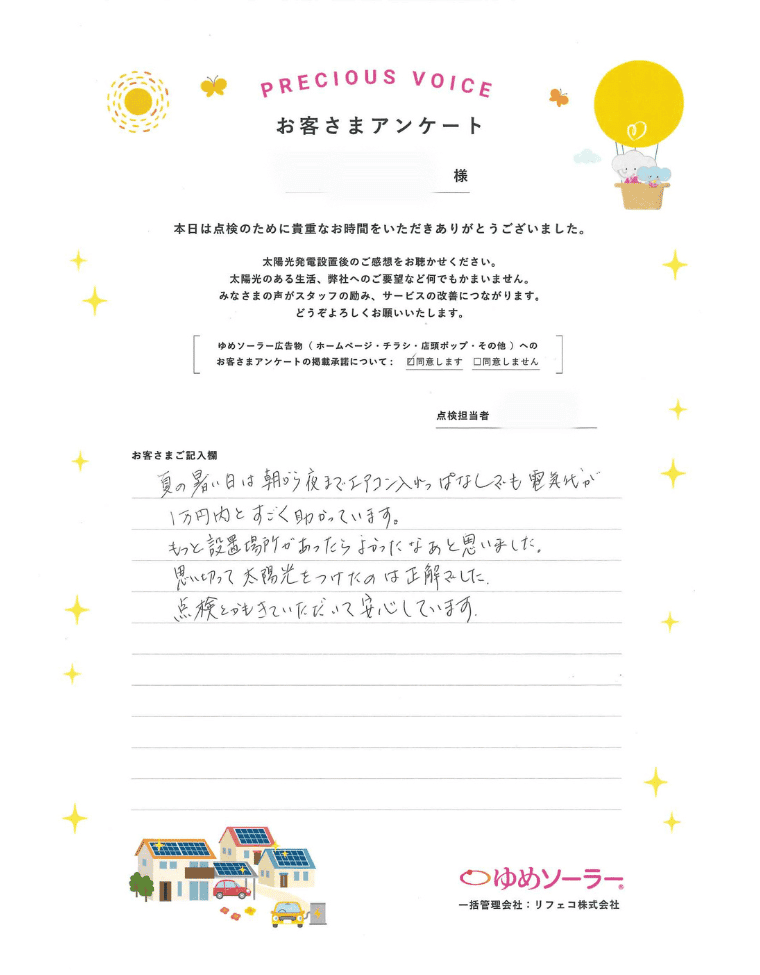 PRECIOUS VOICE
お客さまアンケート
様
本日は点検のために貴重なお時間をいただきありがとうございました。
太陽光発電設置後のご感想をお聴かせください。
太陽光のある生活、弊社へのご要望など何でもかまいません。
みなさまの声がスタッフの励み、サービスの改善につながります。
どうぞよろしくお願いいたします。
ゆめソーラー広告物（ ホームページ・チラシ・店頭ポップ・その他 ）への
お客さまアンケートの掲載承諾について： ☑同意します □同意しません
点検担当者
お客さまご記入欄
夏の暑い日は朝から夜までエアコン入れっぱなしでも電気代が
1万円内とすごく助かっています。
もっと設置場所があったらよかったなあと思いました。
思い切って太陽光をつけたのは正解でした.
点検とかもきていただいて安心しています.
ゆめソーラー®
一括管理会社：リフェコ株式会社